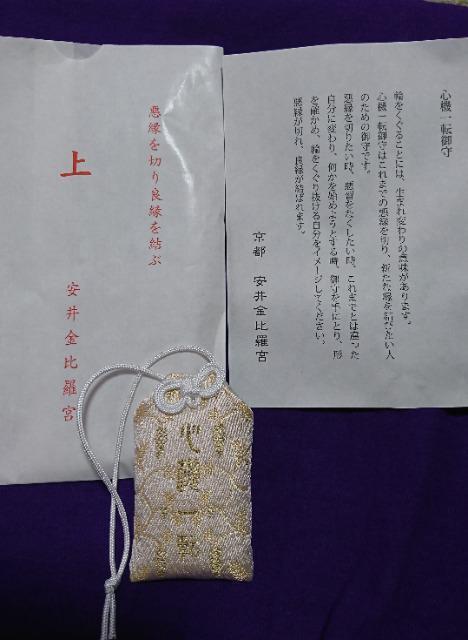 心機一転御守
輪をくぐることには、生まれ変わりの意味があります。
心機一転御守はこれまでの悪縁を切り、新たな縁を結びたい人
のための御守です。
悪縁を切りたい時、悪習をなくしたい時、これまでとは違った
自分に変わり、何かを始めようとする時、御守を手にとり、形
を確かめ、輪をくぐり抜ける自分をイメージしてください。
悪縁が切れ、良縁が結ばれます。
京都 安井金比羅宮
悪縁を切り良縁を結ぶ
上
安井金比羅宮
心機一転